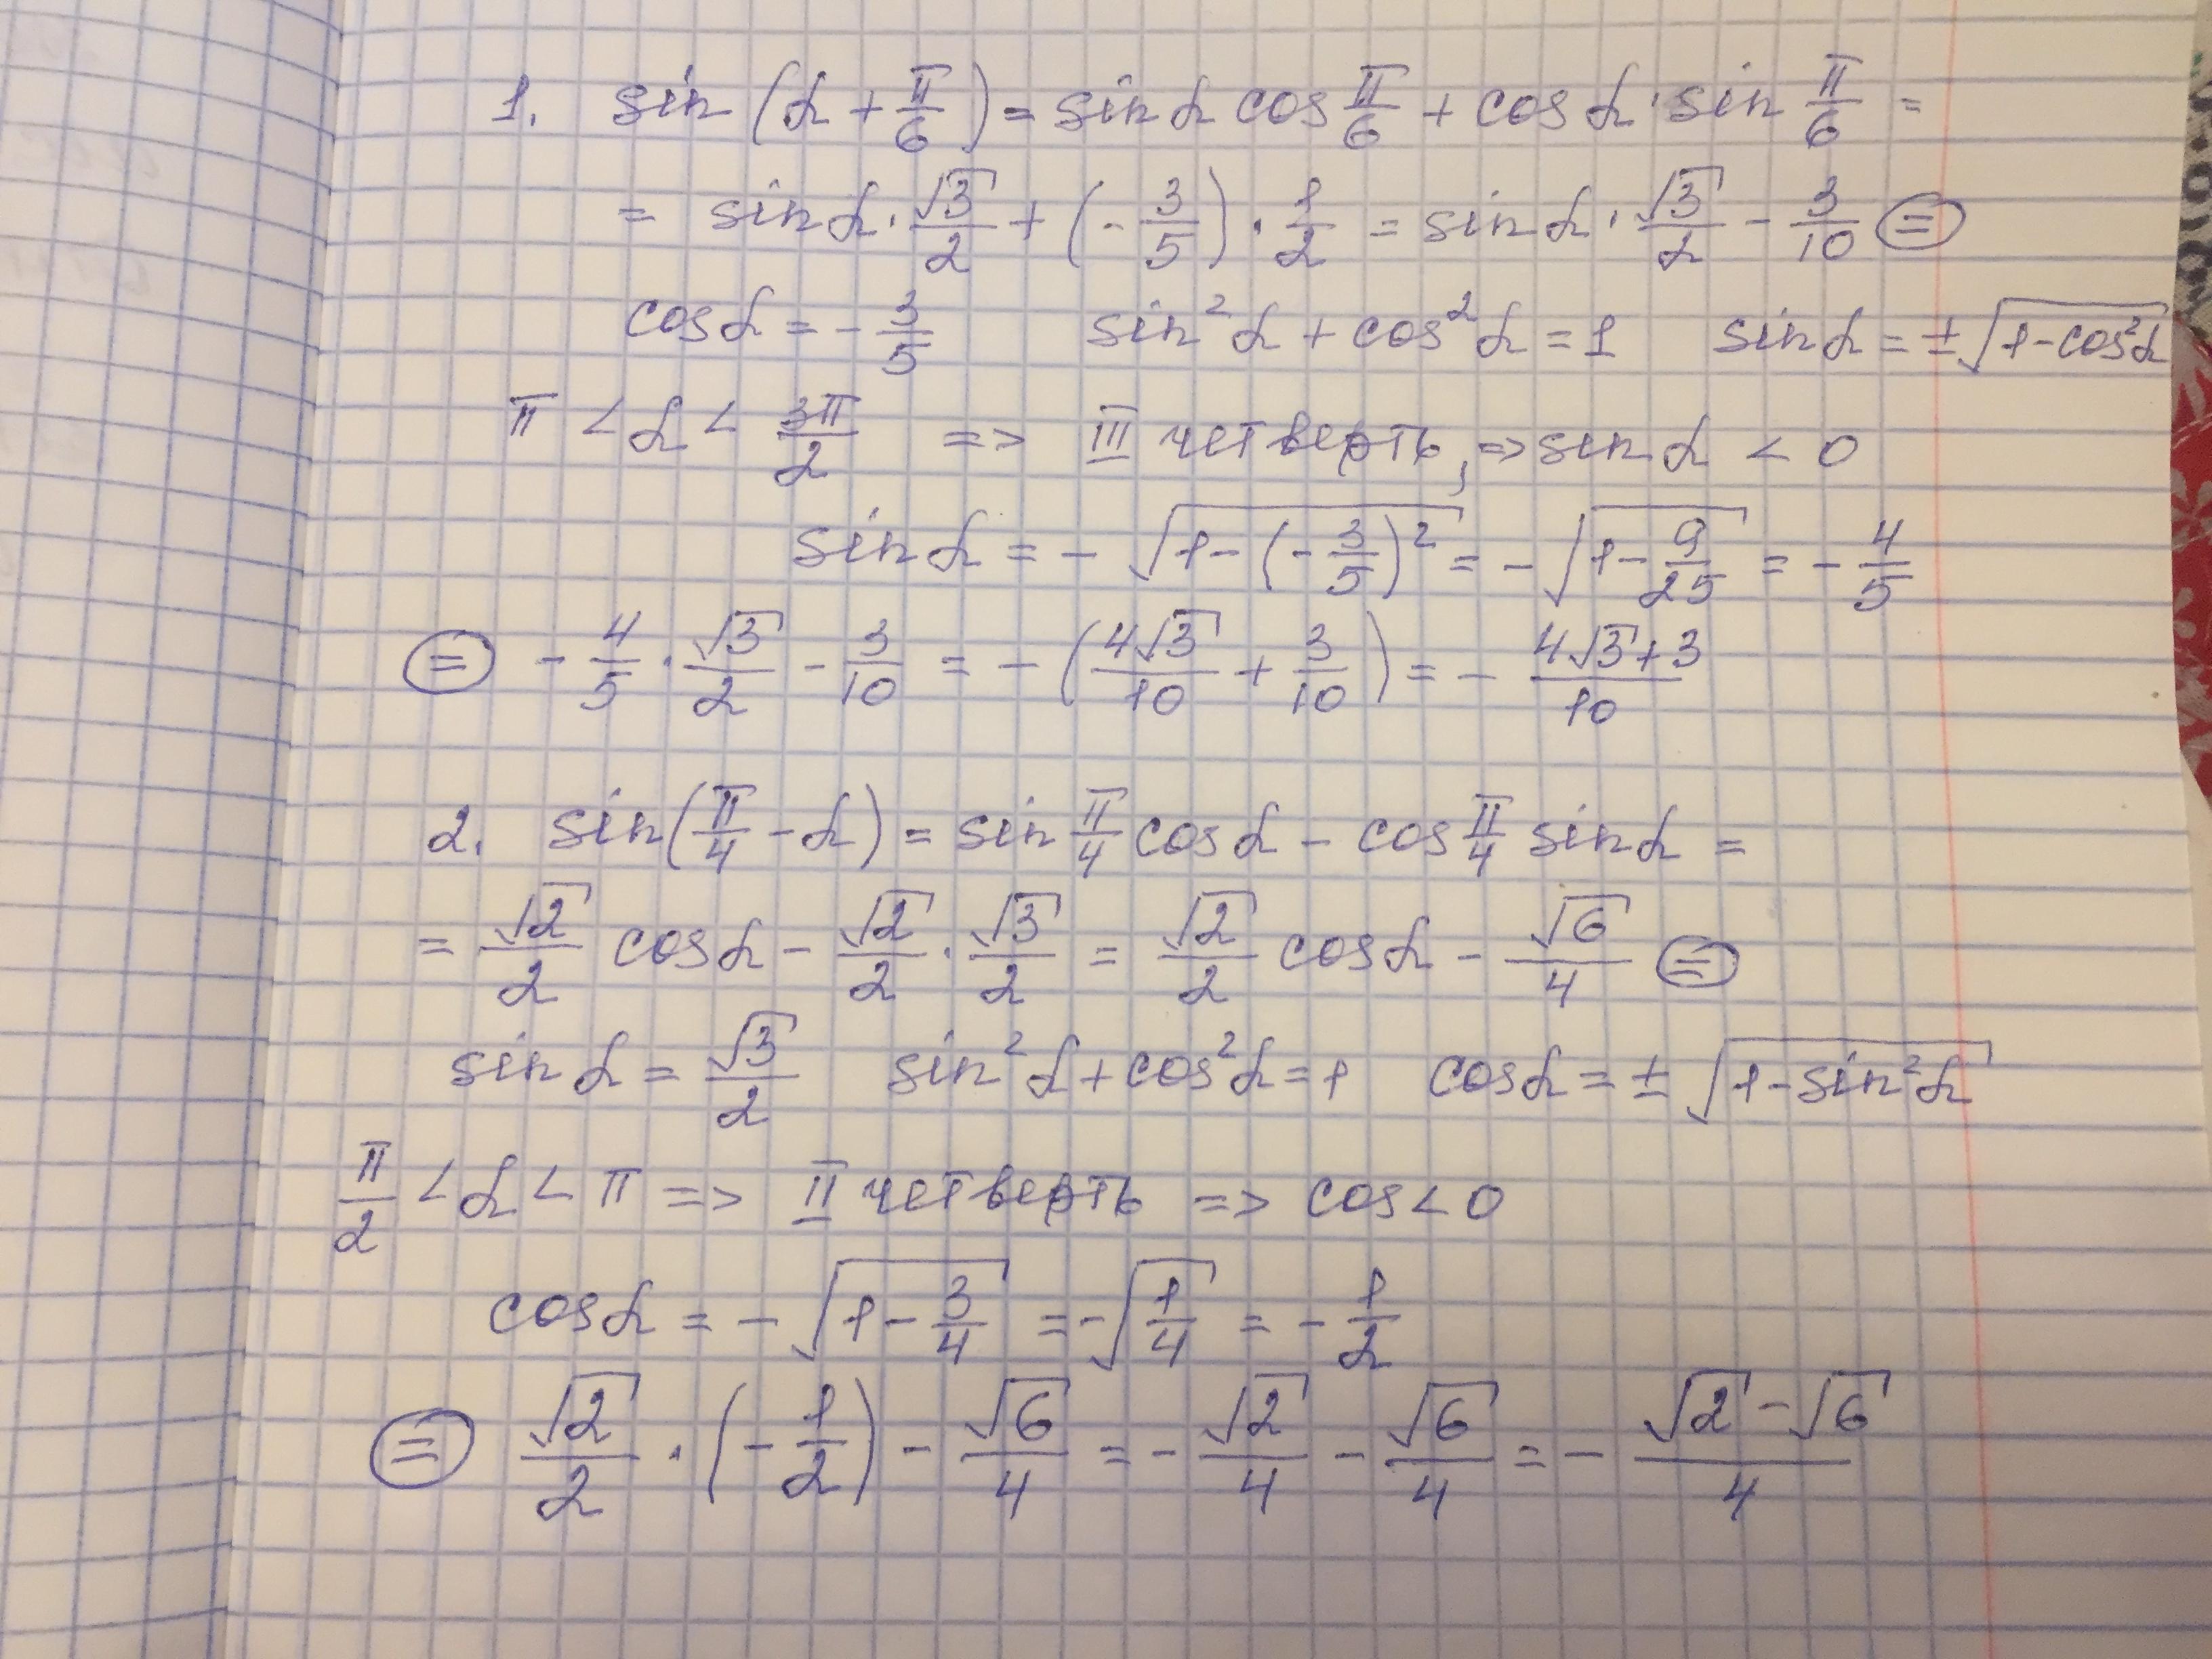 1. sin(α + π/6) = sin α cos π/6 + cos α · sin π/6 =
= sin α · √3/2 + (-3/5) · 1/2 = sin α · √3/2 - 3/10 ⊜
cos α = -3/5 sin²α + cos²α = 1 sin α = ±√(1-cos²α)
π < α < 3π/2 => III четверть, => sin α < 0
sin α = -√(1-(-3/5)²) = -√(1-9/25) = -4/5
⊜ -4/5 · √3/2 - 3/10 = -(4√3/10 + 3/10) = -(4√3+3)/10
2. sin(π/4 - α) = sin π/4 cos α - cos π/4 sin α =
= √2/2 cos α - √2/2 · √3/2 = √2/2 cos α - √6/4 ⊜
sin α = √3/2 sin²α + cos²α = 1 cos α = ±√(1-sin²α)
π/2 < α < π => II четверть => cos < 0
cos α = -√(1-3/4) = -√(1/4) = -1/2
⊜ √2/2 · (-1/2) - √6/4 = -√2/4 - √6/4 = -(√2-√6)/4